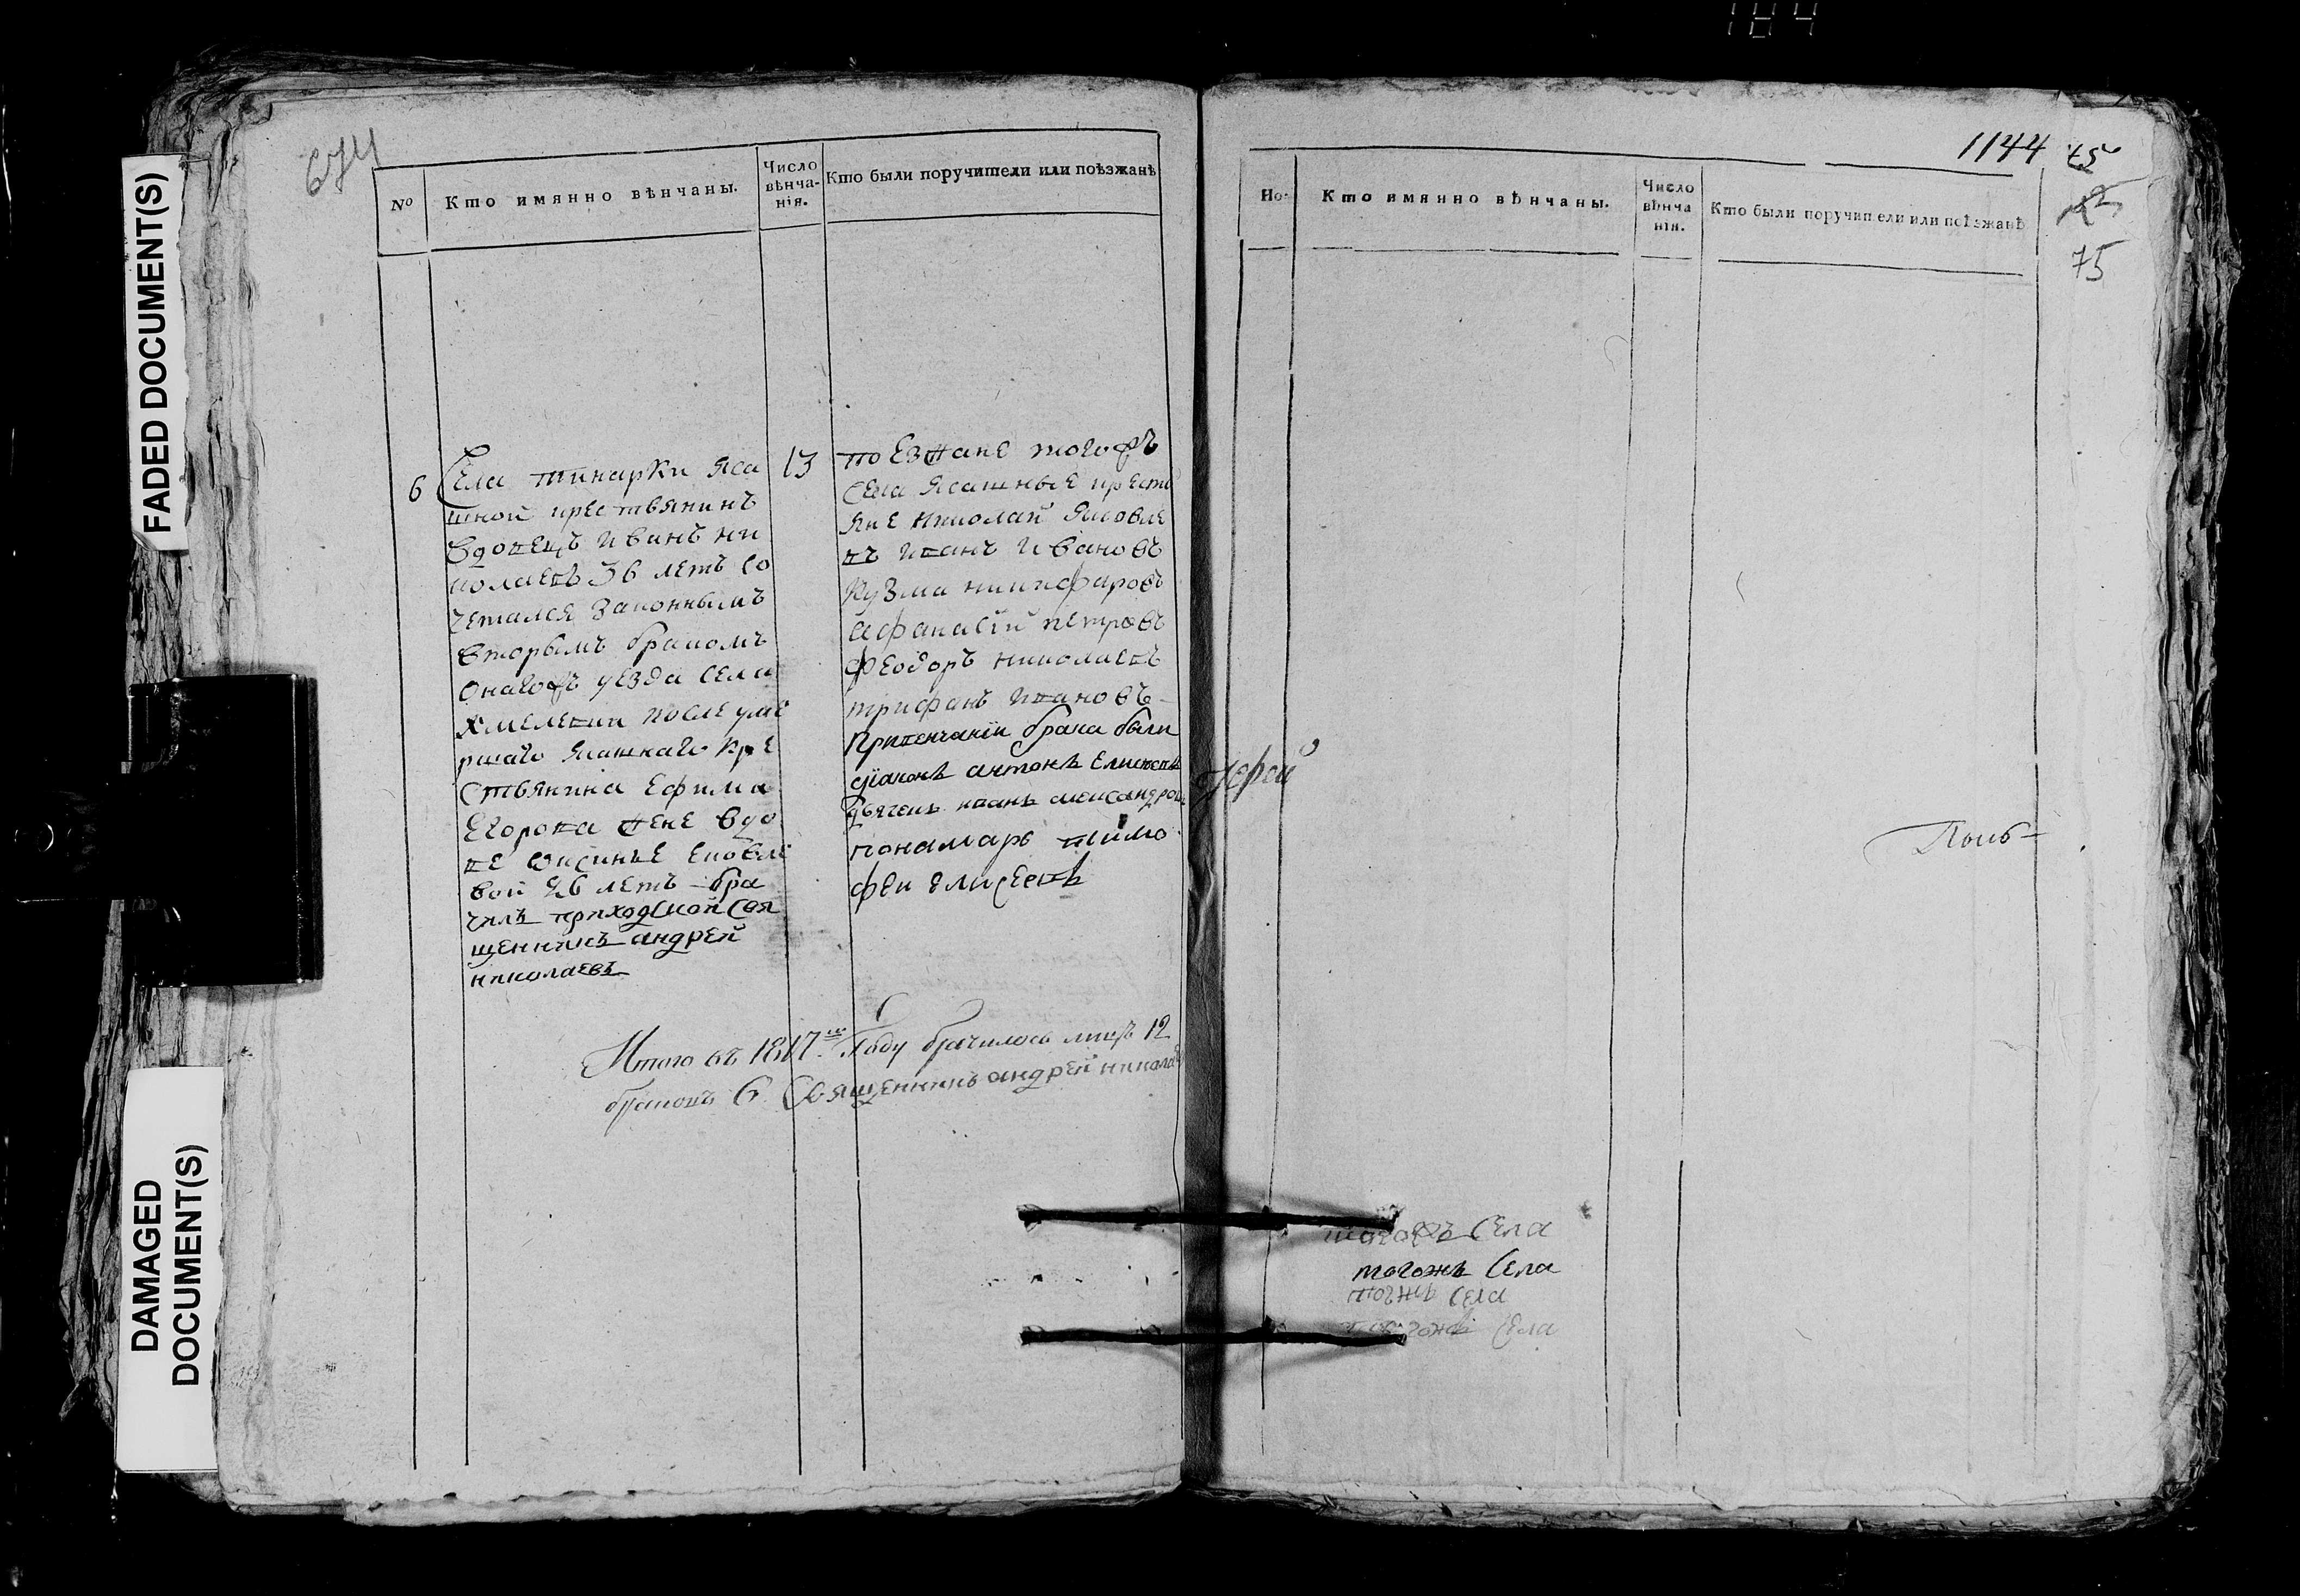 184
FADED DOCUMENT(S)
DAMAGED
DOCUMENT(S)
674
№ Кто имянно вѣнчаны. Число вѣнча-нія. Кто были поручители или поѣзжанѣ
6 Села тинарки яса 13
шной крестьянинъ
вдовецъ иванъ ни
колаевъ 36 летъ со
четался законнымъ
вторымъ бракомъ
онагожъ уезда села
хмелевки после уме
ршаго ясашнаго кре
стьянина ефима
егорова жене вдо
ве
вой 26 летъ бра
чилъ приходской свя
щенникъ андрей
николаевъ
поезжане тогожъ
села ясашные крестьяне
николай яковле
въ иванъ ивановъ
кузма никифоровъ
афанасій петровъ
феодоръ николаевъ
трифанъ ивановъ
привенчаніи брака были
діаконъ антонъ елисеевъ
дьячекъ иванъ александровъ
понамарь тимо
феи елисеевъ
Итого въ 1817м Году брачилось лицъ 12
браковъ 6 Священникъ андрей николаевъ
1144
75
Но: Кто имянно вѣнчаны. Число вѣнча нія. Кто были поручители или поѣзжанѣ
75
Іерей
тогожъ Села
тогожъ Села
Села
тогожъ Села